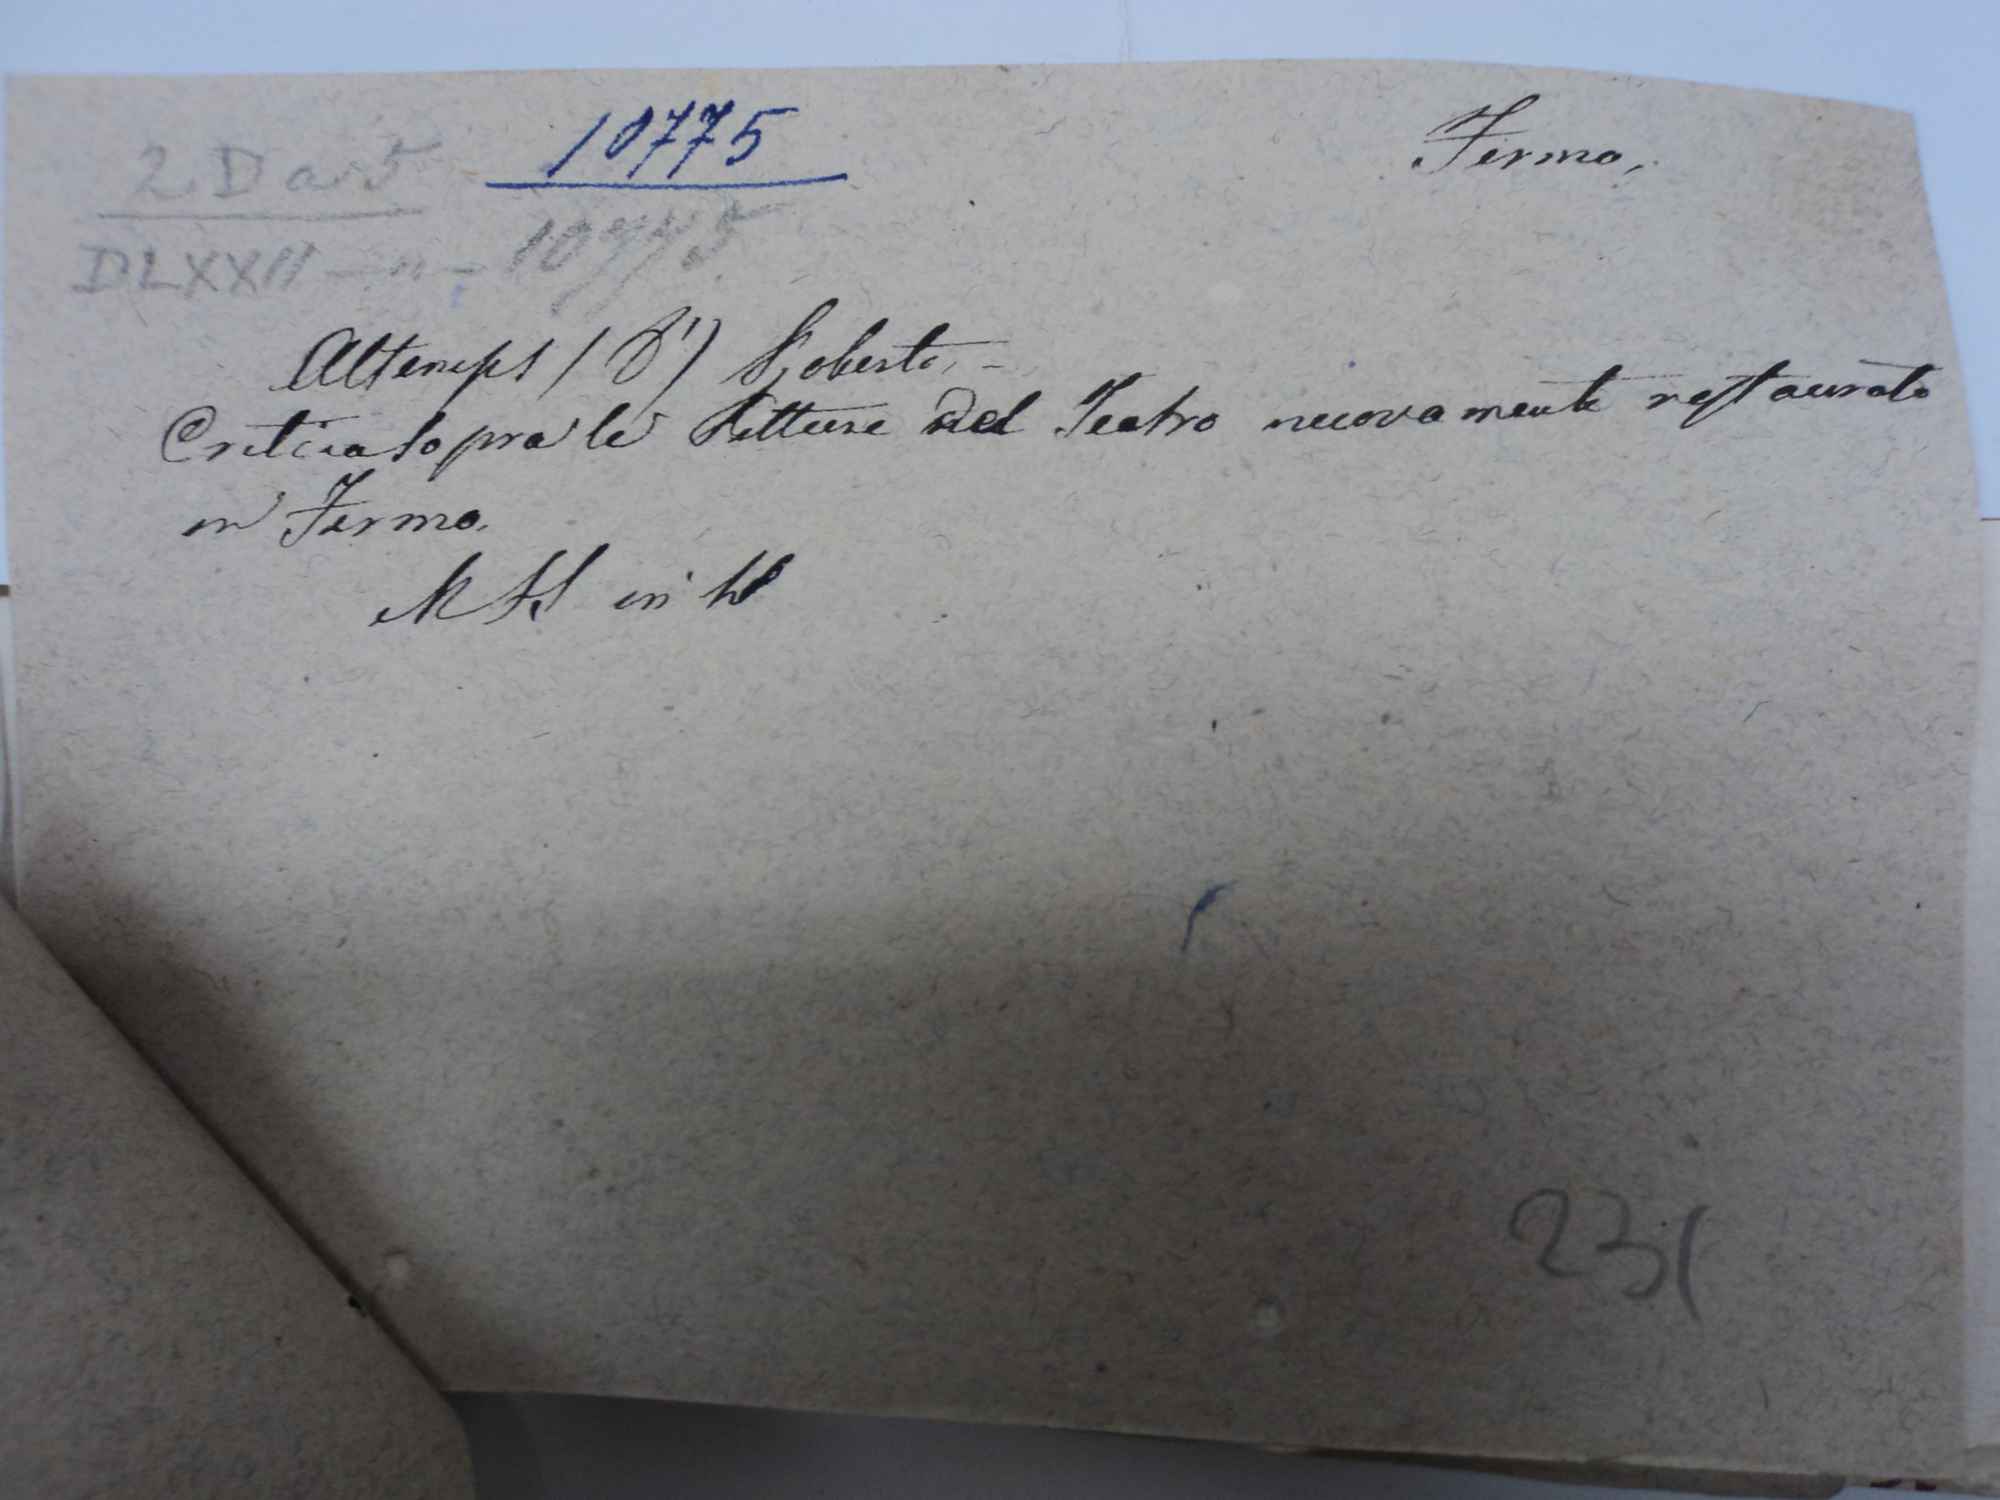 2 D a 5
10775
Fermo,
DLXXII - n - 10775
Altemps (D') Roberto, -
Critica sopra le Pitture del Teatro nuovamente restaurato
in Fermo.
MSS in
231